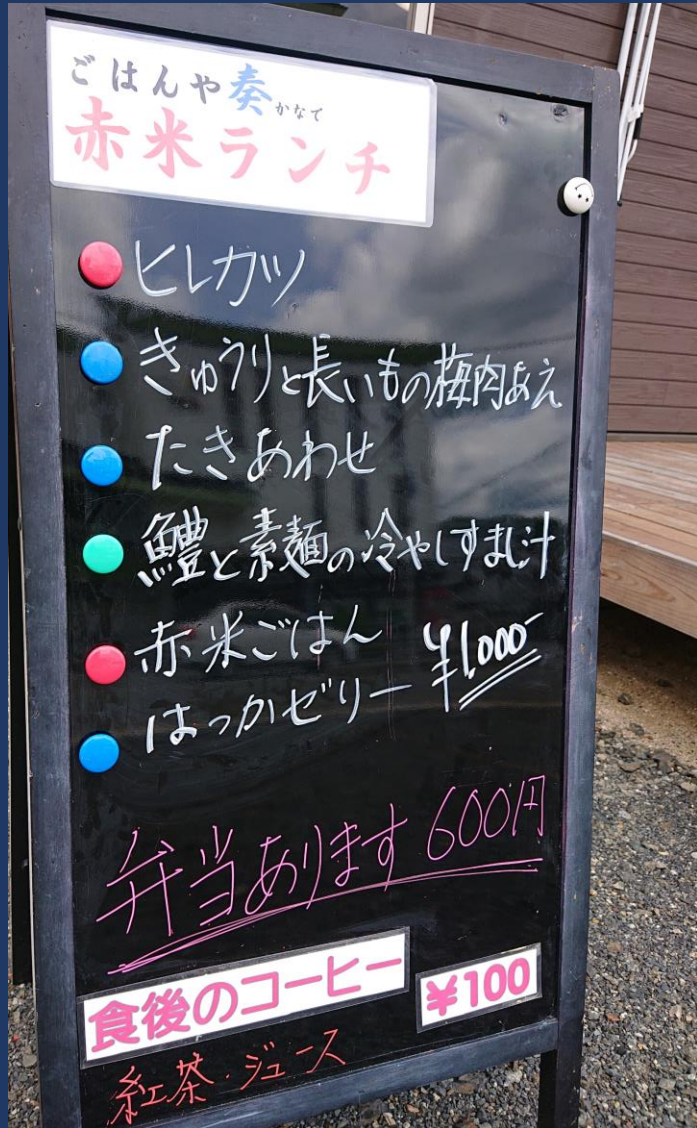 ごはんや奏かなで
赤米ランチ
ヒレカツ
きゅうりと長いもの梅肉あえ
たきあわせ
鱧と素麺の冷やしすまし汁
赤米ごはん
¥1,000-
はっかゼリー
弁当あります 600円
食後のコーヒー ¥100
紅茶・ジュース